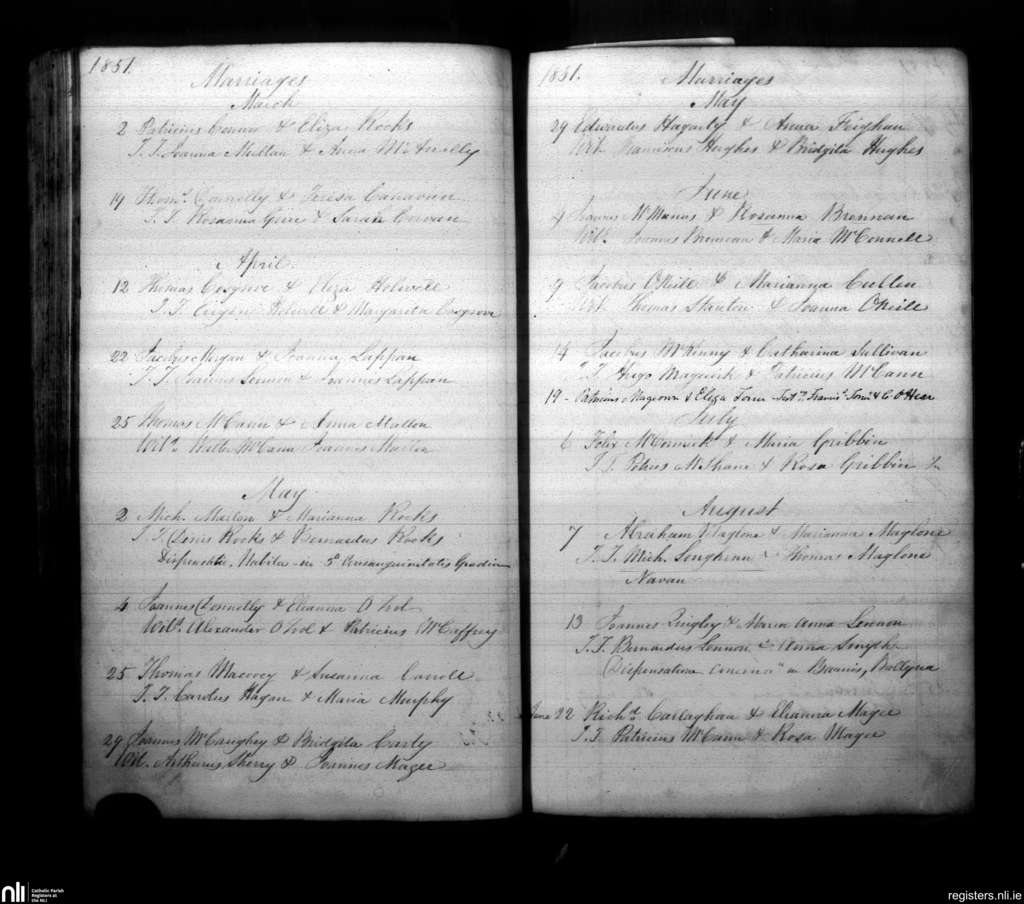 1851.
Marriages
March
2 Patricius & Eliza Rooks
T.T. Joanna Mullan & Anna
19 Thoms. Connolly & Teresa
T.T. Rosanna & Sarah
April
12 Thomas Cosgrove & Eliza Holwell
T.T. Eugen Holwell & Margarita Cosgrove
22 Jacobus Morgan & Joanna Lappan
T.T. Lennon & Joannes Lappan
25 Thomas McCann & Anna Mallon
Wits. McCann Joannes Mallon
May
2 Mich. & Marianna Rooks
T.T. Denis Rooks & Bernardus Rooks
in 5° Consanguinitatis
4 Joannes Donnelly & Elianna O
Wits. Alexander O & Patricius McCaffrey
25 Thomas Macvey & Susanna Carroll
T.T. Carolus Hagan & Maria Murphy
29 Joannes McCaughey & Bridgita Carty
Wit. Arthurus Sherry & Joannes Magee
1851.
Marriages
May
29 Edwardus Hagarty & Anna Feighan
Wit. Hughes & Bridgita Hughes
June
4 Joannes McManus & Rosanna Brennan
Wits. Joannes Brennan & Maria McConnell
9 Jacobus O'Neill & Marianna Cullen
Wit. Thomas Stanton & Joanna O'Neill
14 Jacobus McKenny & Catharina Sullivan
T.T. Hugo & Patricius McCann
19 - Patricius Mageown & Eliza - & C. O'Hear
July
6 Felix McCormick & Maria Gribbin
T.T. Petrus McShane & Rosa Gribbin
August
7 Abraham Maglone & Marianna Maglone
T.T. Mich. Loughran & Thomas Maglone
Navan
13 Joannes Quigley & Maria Anna Lennon
T.T. Bernardus Lennon & Anna Smyth
Dispensation in Bannis,
June 22 Richd. Carlaghan & Elianna Magee
T.T. Patricius McCann & Rosa Magee
nli
Catholic Parish
Registers at
the NLI
registers.nli.ie